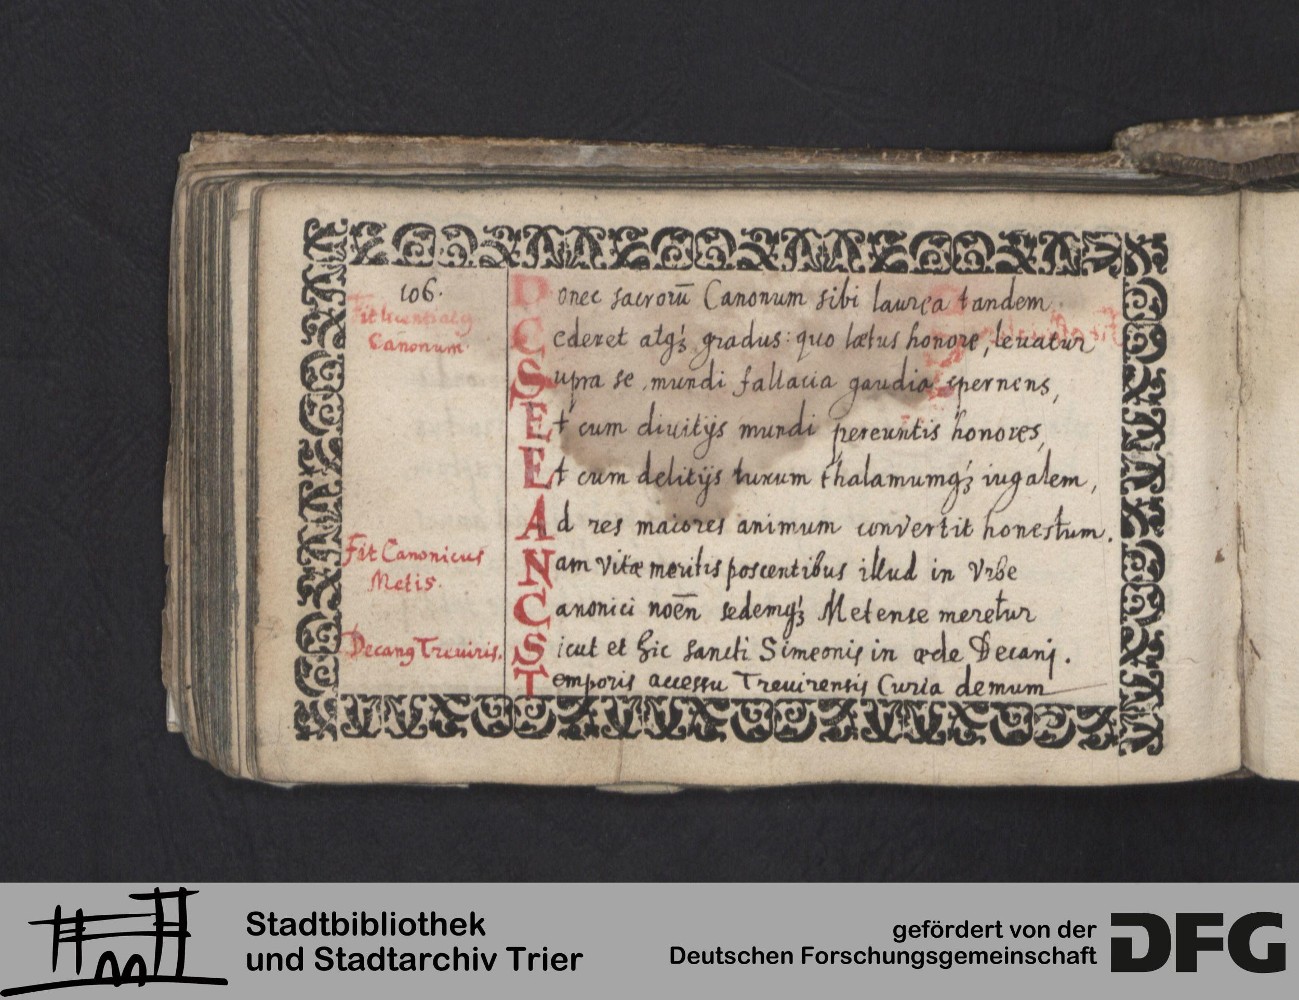 106.
Fit licentiatꝯ
Canonum.
Donec sacrorū Canonum sibi laurea tandem
Cederet atqꝫ gradus: quo lætus honore, levatur
Supra se mundi fallacia gaudia spernens,
Et cum divitijs mundi pereuntis honores,
Et cum delitijs luxum thalamumqꝫ iugalem,
Ad res maiores animum convertit honestum.
Fit Canonicus
Metis.
Nam vitæ meritis poscentibus illud in Vrbe
Canonici noēn sedemqꝫ Metense meretur
Decanꝯ Treviris.
Sicut et hic sancti Simeonis in æde Decanj.
Temporis accessu Trevirensis Curia demum
Stadtbibliothek
und Stadtarchiv Trier
gefördert von der
Deutschen Forschungsgemeinschaft
DFG